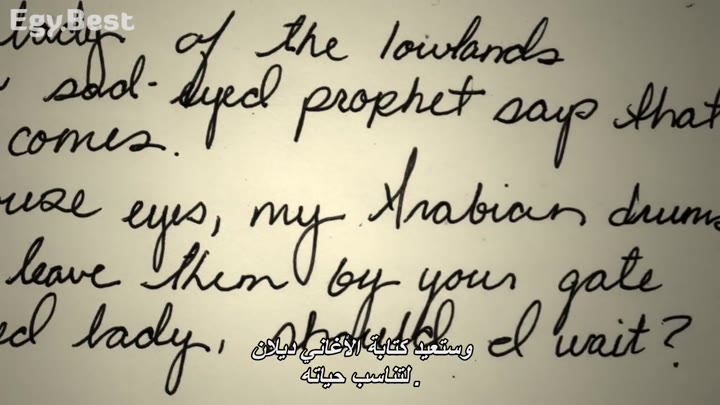 EgyBest
lady of the lowlands
sad-eyed prophet says that
comes.
use eyes, my Arabian drums
leave them by your gate
ed lady, should I wait?
وستعيد كتابة الأغاني ديلان
لتناسب حياته.